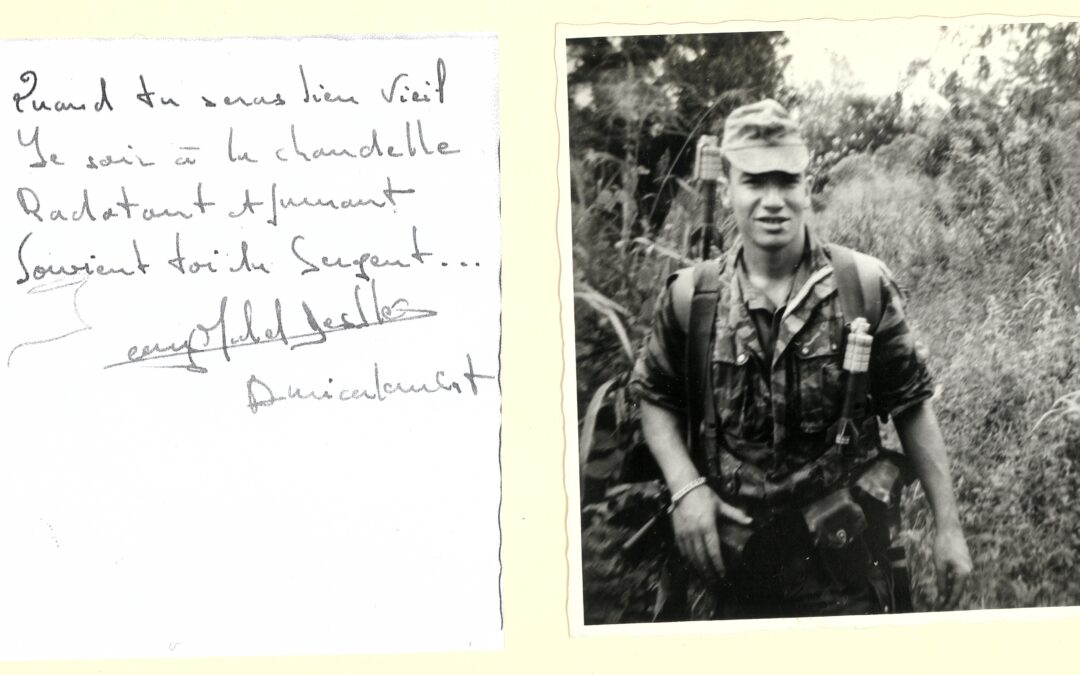 Quand tu seras bien Vieil
Le soir à la chandelle
Radotant et fumant
Souvient toi du Sergent...
Amicalement